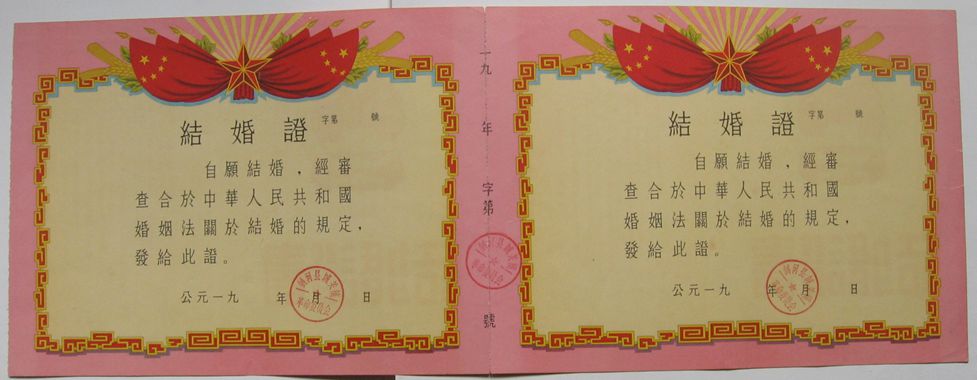 結婚證 字第 號
自願結婚，經審
查合於中華人民共和國
婚姻法關於結婚的規定，
發給此證。
公元一九 年 月 日
一九 年 字第 號
結婚證 字第 號
自願結婚，經審
查合於中華人民共和國
婚姻法關於結婚的規定，
發給此證。
公元一九 年 月 日